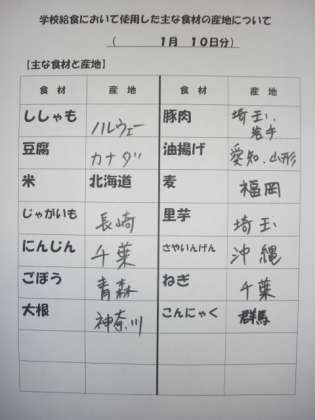 学校給食において使用した主な食材の産地について
( 1月 10日分)
【主な食材と産地】
食 材 産 地 食 材 産 地
ししゃも ノルウェー 豚肉 埼玉、岩手
豆腐 カナダ 油揚げ 愛知、山形
米 北海道 麦 福岡
じゃがいも 長崎 里芋 埼玉
にんじん 千葉 さやいんげん 沖縄
ごぼう 青森 ねぎ 千葉
大根 神奈川 こんにゃく 群馬